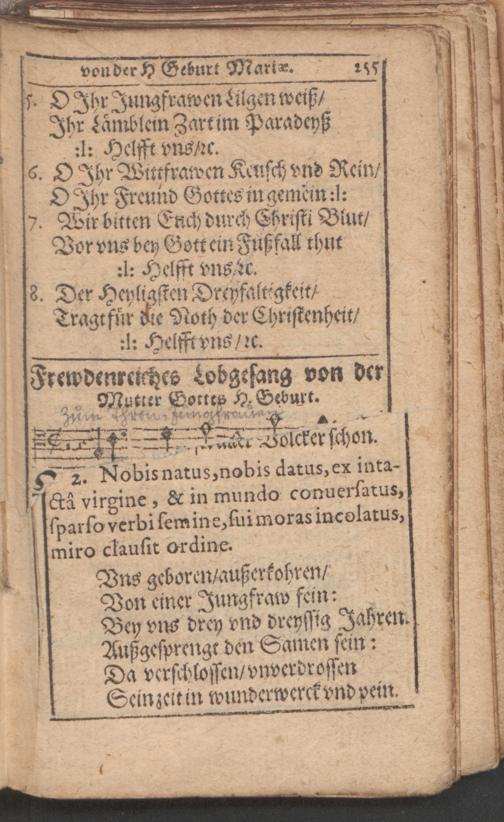 von der H Geburt Mariæ. 255
5. O Ihr Jungfrawen Lilgen weiß/
Ihr Lämblein Zart im Paradeyß
:l: Helfft vns/ꝛc.
6. O Ihr Wittfrawen Keusch vnd Rein/
O Ihr Freund Gottes in gemein :l:
7. Wir bitten Euch durch Christi Blut/
Vor vns bey Gott ein Fußfall thut
:l: Helfft vns/ꝛc.
8. Der Heyligsten Dreyfaltigkeit/
Tragt für die Noth der Christenheit/
:l: Helfft vns/ꝛc.
Frewdenreiches Lobgesang von der
Mutter Gottes H. Geburt.
Zum Ehren Jungfrauen
Völcker schon.
2. Nobis natus, nobis datus, ex inta-
ctâ virgine, & in mundo conuersatus,
sparso verbi semine, sui moras incolatus,
miro clausit ordine.
Vns geboren/außerkohren/
Von einer Jungfraw fein:
Bey vns drey vnd dreyssig Jahren.
Außgesprengt den Samen sein:
Da verschlossen/vnverdrossen
Sein zeit in wunderwerck vnd pein.